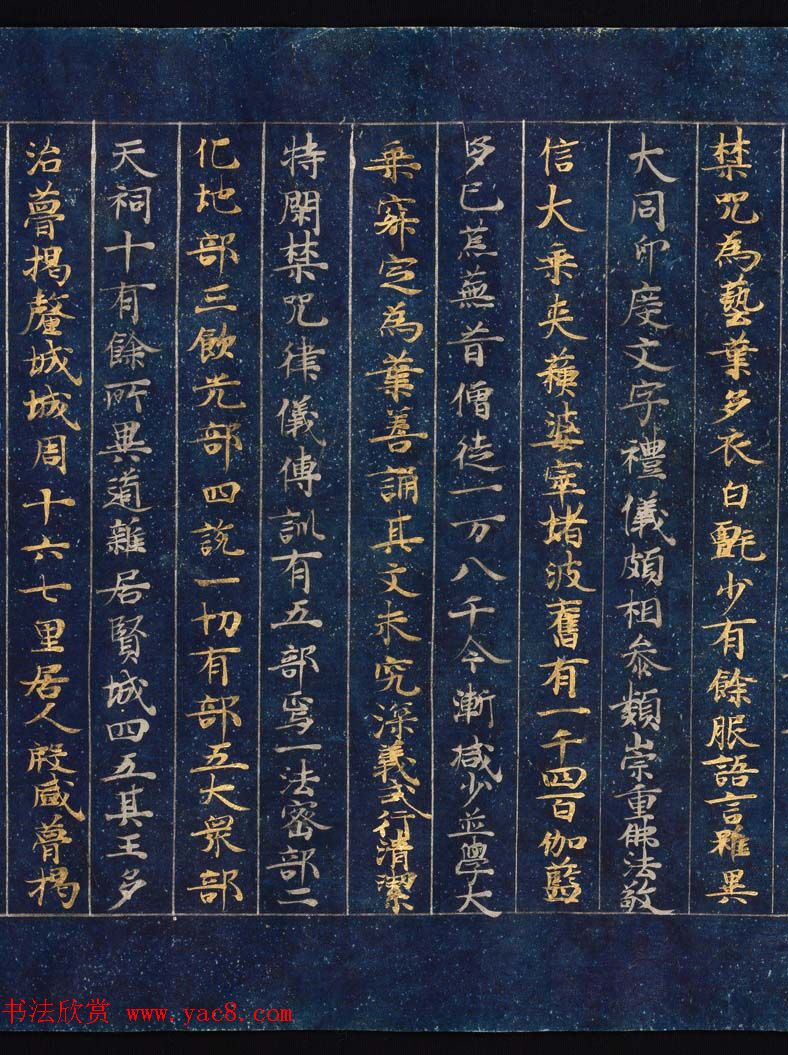 禁咒為藝葉多衣白㲲少有餘服語言雖異
大同印度文字禮儀頗相叅類崇重佛法敬
信大乗夾蘇婆窣堵波舊有一千四百伽藍
多已蕪昔僧徒一万八千今漸减少並學大
乗寂定為葉善誦其文未究深義戒行清潔
特閑禁咒律儀傳訓有五部焉一法密部二
化地部三飲光部四說一切有部五大眾部
天祠十有餘所異道雜居賢城四五其王多
治瞢揭釐城城周十六七里居人殷盛瞢揭
书法欣赏 www.yac8.com